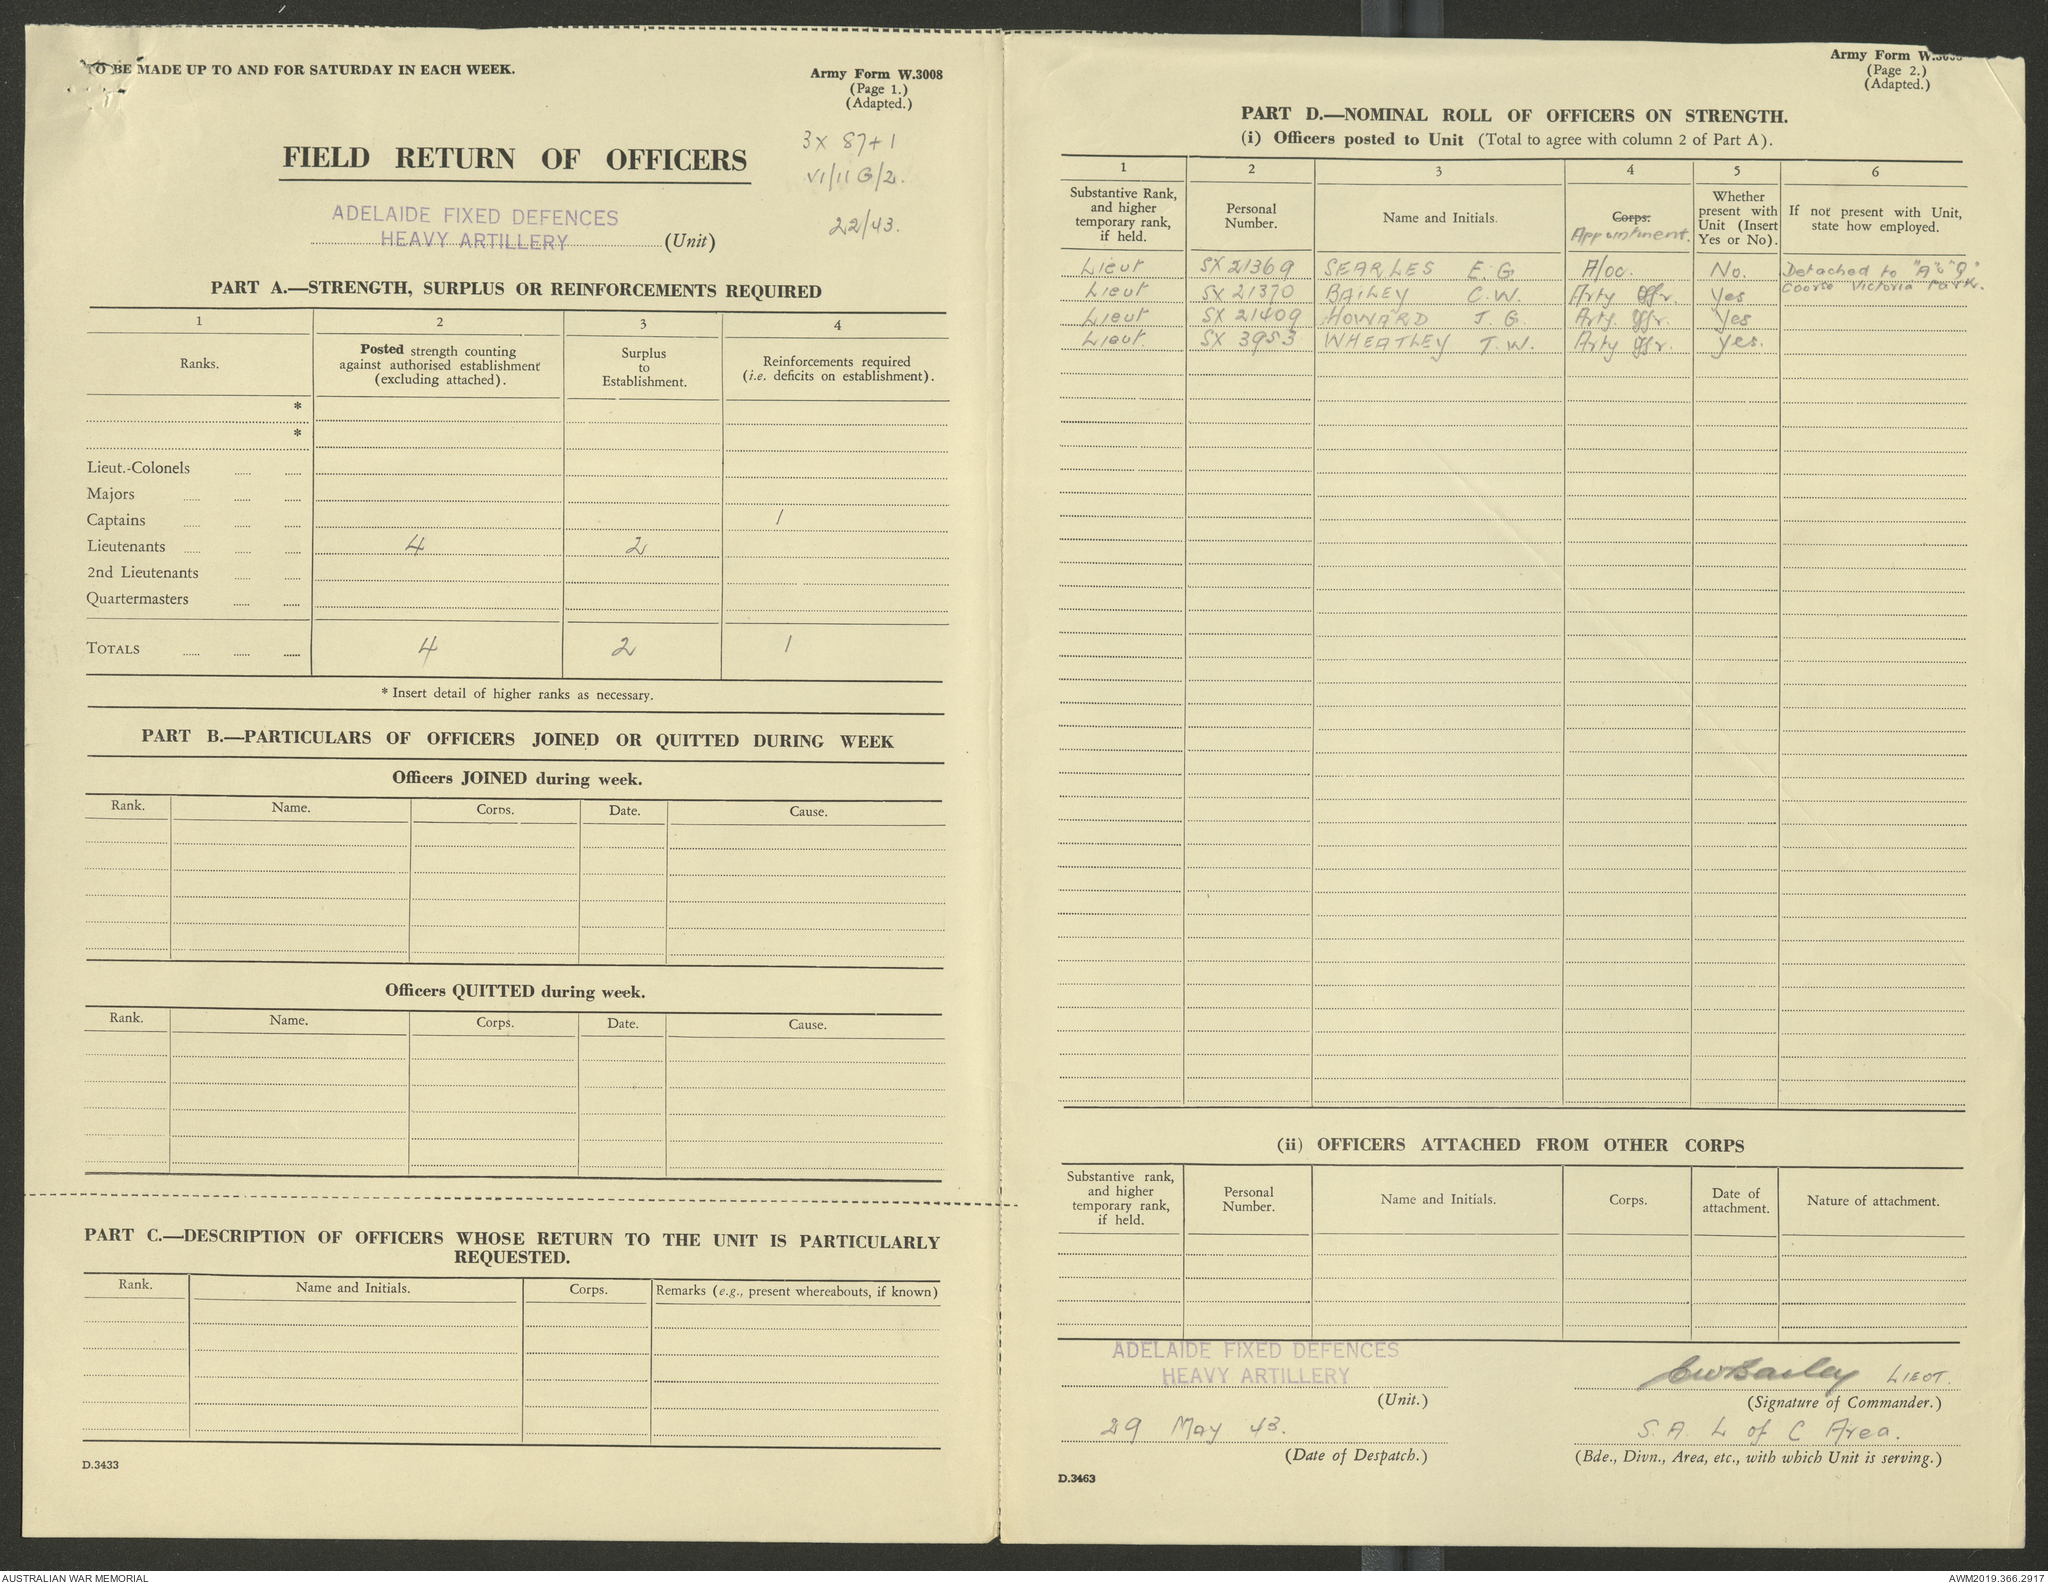 TO BE MADE UP TO AND FOR SATURDAY IN EACH WEEK.
Army Form W.3008
(Page 1.)
(Adapted.)
3 X 87+1
VI/11 G/2.
22/43.
FIELD RETURN OF OFFICERS
ADELAIDE FIXED DEFENCES
HEAVY ARTILLERY (Unit)
PART A.—STRENGTH, SURPLUS OR REINFORCEMENTS REQUIRED
1 2 3 4
Ranks. Posted strength counting against authorised establishment (excluding attached). Surplus to Establishment. Reinforcements required (i.e. deficits on establishment).
*
*
Lieut.-Colonels
Majors
Captains 1
Lieutenants 4 2
2nd Lieutenants
Quartermasters
TOTALS 4 2 1
* Insert detail of higher ranks as necessary.
PART B.—PARTICULARS OF OFFICERS JOINED OR QUITTED DURING WEEK
Officers JOINED during week.
Rank. Name. Corps. Date. Cause.
Officers QUITTED during week.
Rank. Name. Corps. Date. Cause.
PART C.—DESCRIPTION OF OFFICERS WHOSE RETURN TO THE UNIT IS PARTICULARLY
REQUESTED.
Rank. Name and Initials. Corps. Remarks (e.g., present whereabouts, if known)
D.3433
Army Form W.3008
(Page 2.)
(Adapted.)
PART D.—NOMINAL ROLL OF OFFICERS ON STRENGTH.
(i) Officers posted to Unit (Total to agree with column 2 of Part A).
1 2 3 4 5 6
Substantive Rank, and higher temporary rank, if held. Personal Number. Name and Initials. Corps. Appointment. Whether present with Unit (Insert Yes or No). If not present with Unit, state how employed.
Lieut SX 21369 SEARLES E. G A/OC. No. Detached to "A" & "Q"
Lieut SX 21370 BAILEY C.W. Arty Offr. Yes Coorse Victoria Park.
Lieut SX 21409 HOWARD J. G. Arty. Offr. Yes
Lieut SX 3953 WHEATLEY T.W. Arty Offr. Yes.
(ii) OFFICERS ATTACHED FROM OTHER CORPS
Substantive rank, and higher temporary rank, if held. Personal Number. Name and Initials. Corps. Date of attachment. Nature of attachment.
ADELAIDE FIXED DEFENCES
HEAVY ARTILLERY
(Unit.)
CW Bailey LIEUT.
(Signature of Commander.)
29 May 43.
(Date of Despatch.)
S. A. L of C Area.
(Bde., Divn., Area, etc., with which Unit is serving.)
D.3463
AUSTRALIAN WAR MEMORIAL
AWM2019.366.2917